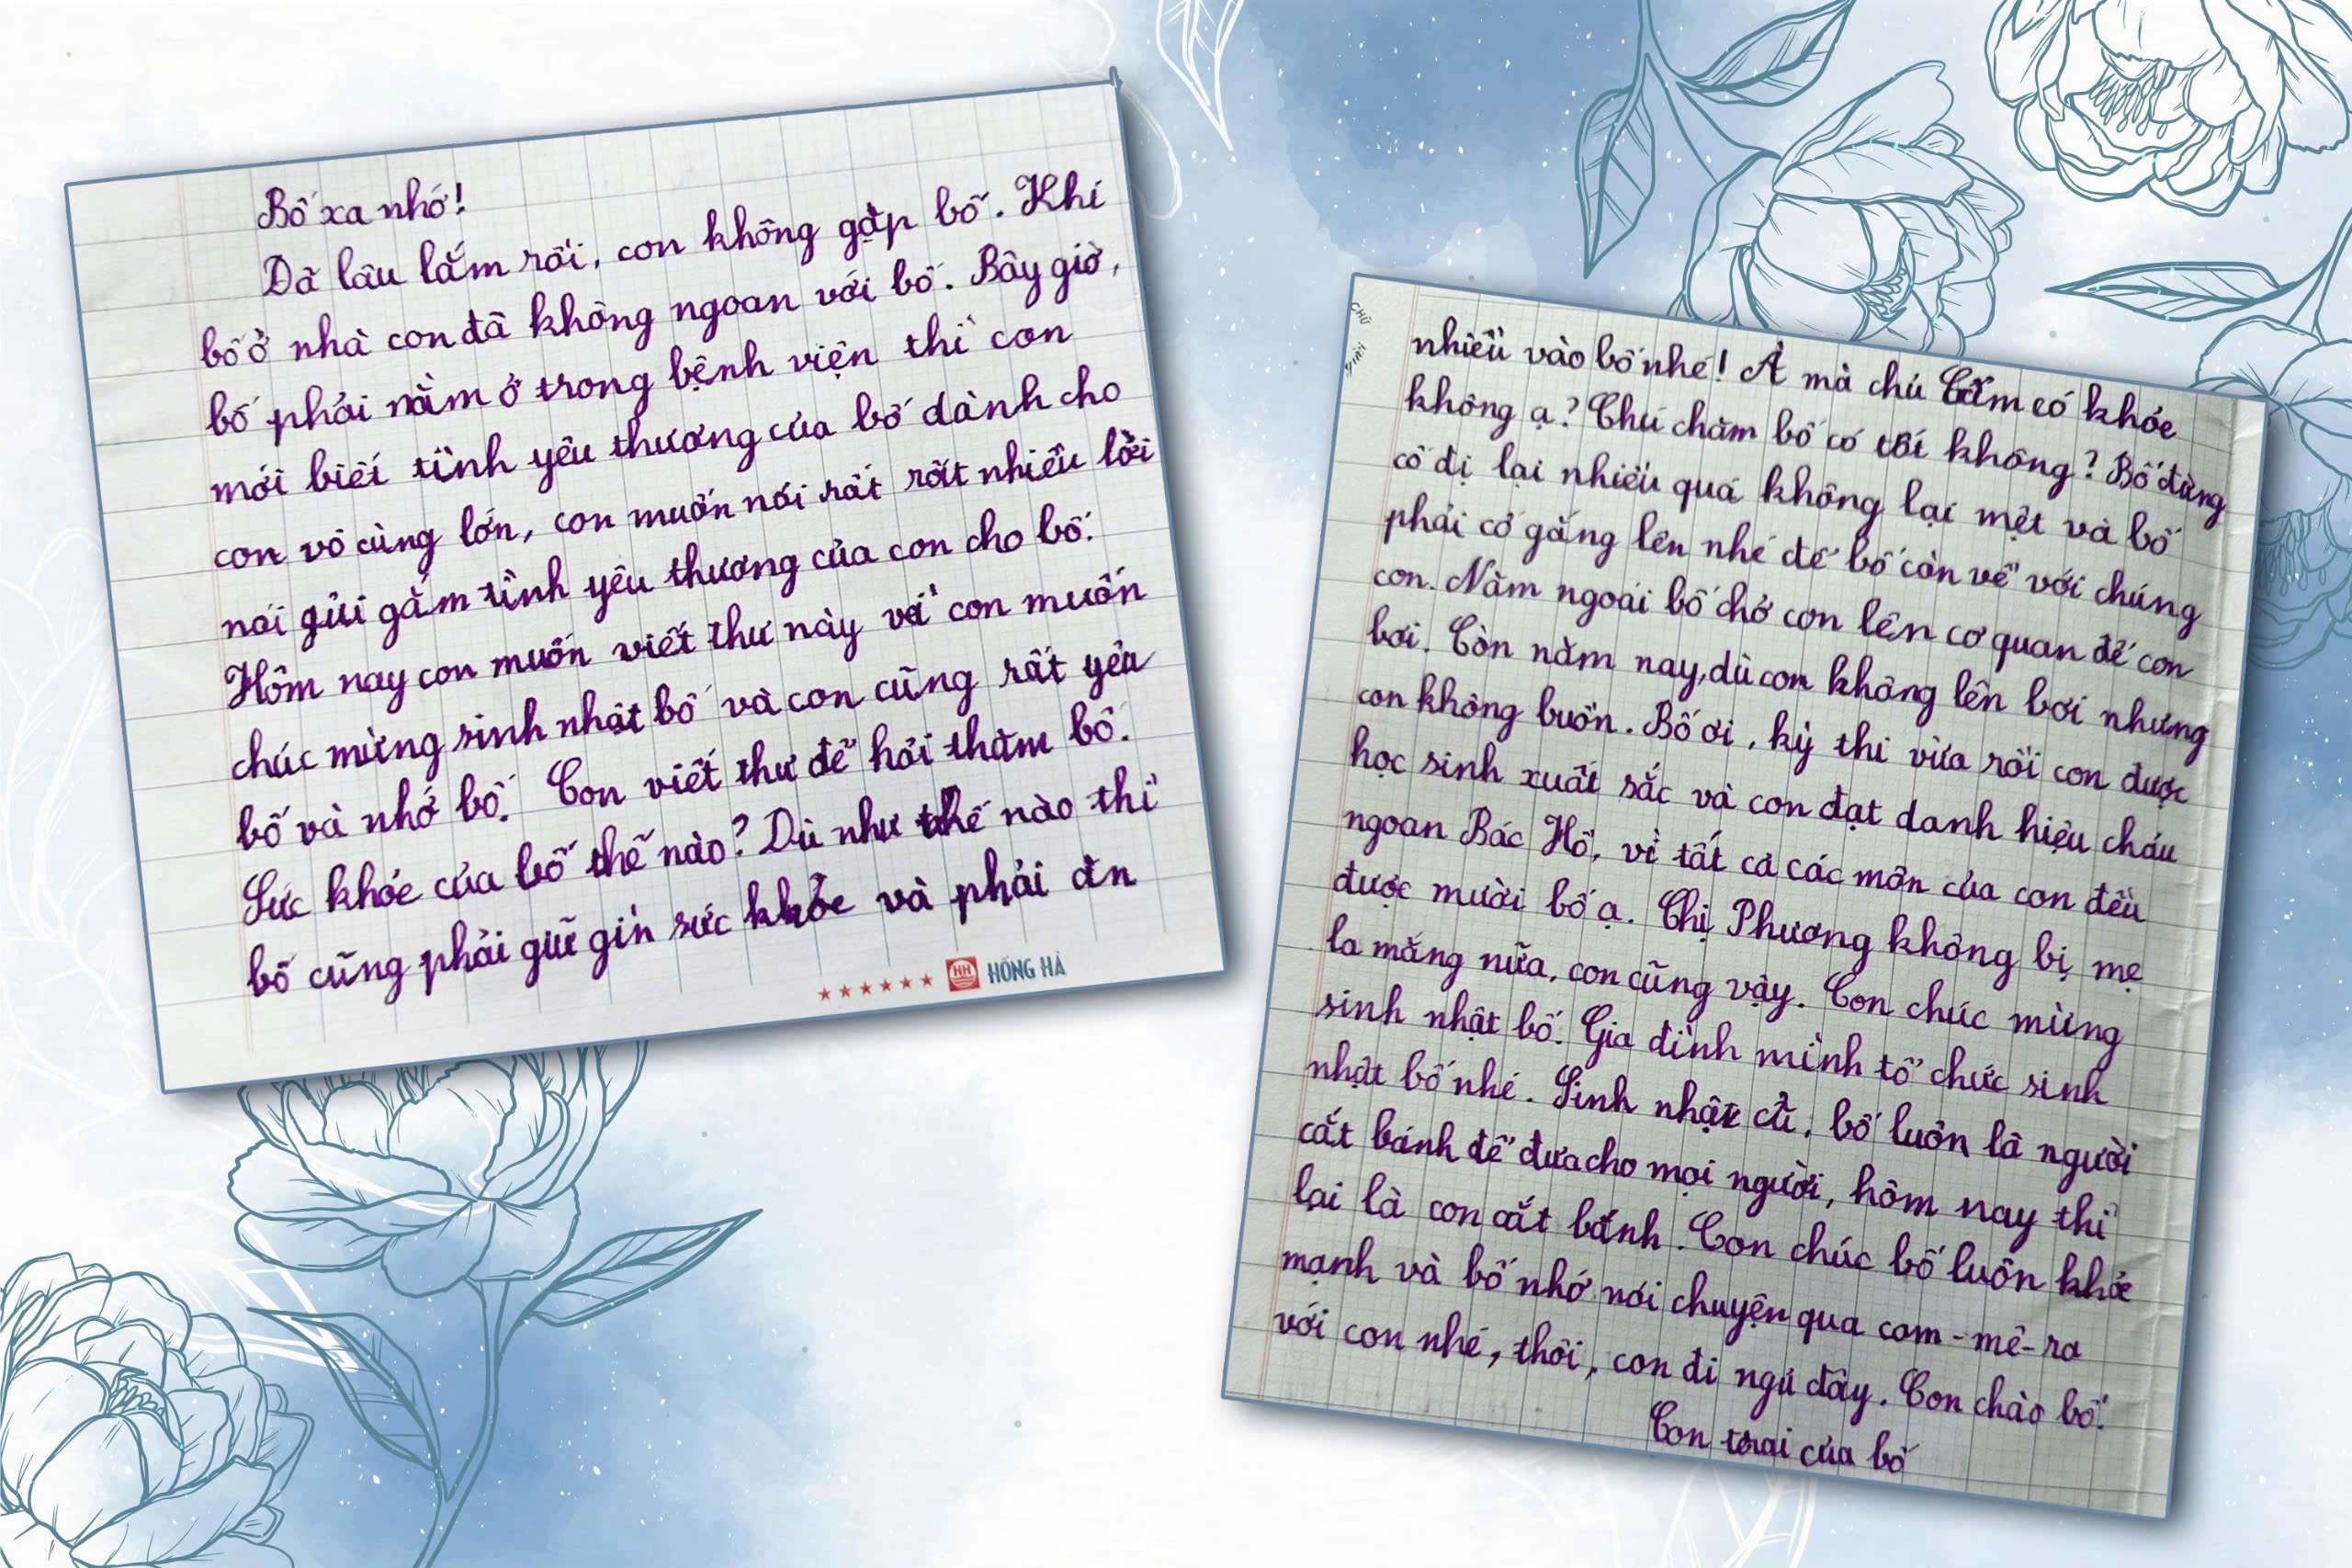 Bố xa nhớ!
Đã lâu lắm rồi, con không gặp bố. Khi
bố ở nhà con đã không ngoan với bố. Bây giờ,
bố phải nằm ở trong bệnh viện thì con
mới biết tình yêu thương của bố dành cho
con vô cùng lớn, con muốn nói rất rất nhiều lời
nói gửi gắm tình yêu thương của con cho bố.
Hôm nay con muốn viết thư này vì con muốn
chúc mừng sinh nhật bố và con cũng rất yêu
bố và nhớ bố. Con viết thư để hỏi thăm bố.
Sức khỏe của bố thế nào? Dù như thế nào thì
bố cũng phải giữ gìn sức khỏe và phải ăn
HỒNG HÀ
nhiều vào bố nhé! À mà chú có khỏe
không ạ? Chú chăm bố có tốt không? Bố đừng
cố đi lại nhiều quá không lại mệt và bố
phải cố gắng lên nhé để bố còn về với chúng
con. Năm ngoái bố chở con lên cơ quan để con
bơi. Còn năm nay, dù con không lên bơi nhưng
con không buồn. Bố ơi, kỳ thi vừa rồi con được
học sinh xuất sắc và con đạt danh hiệu cháu
ngoan Bác Hồ, vì tất cả các môn của con đều
được mười bố ạ. Chị Phương không bị mẹ
la mắng nữa, con cũng vậy. Con chúc mừng
sinh nhật bố. Gia đình mình tổ chức sinh
nhật bố nhé. Sinh nhật cũ, bố luôn là người
cắt bánh để đưa cho mọi người, hôm nay thì
lại là con cắt bánh. Con chúc bố luôn khỏe
mạnh và bố nhớ nói chuyện qua cam-mê-ra
với con nhé, thôi, con đi ngủ đây. Con chào bố.
Con trai của bố